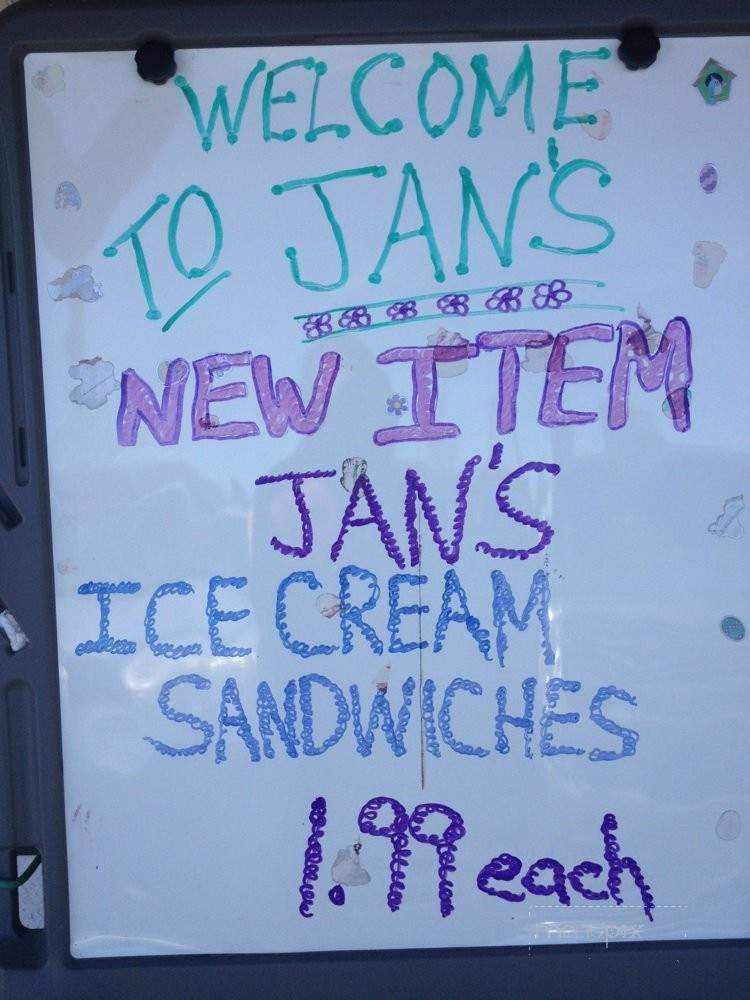 WELCOME
TO JAN'S
NEW ITEM
JAN'S
ICE CREAM
SANDWICHES
1.99 each
menupix